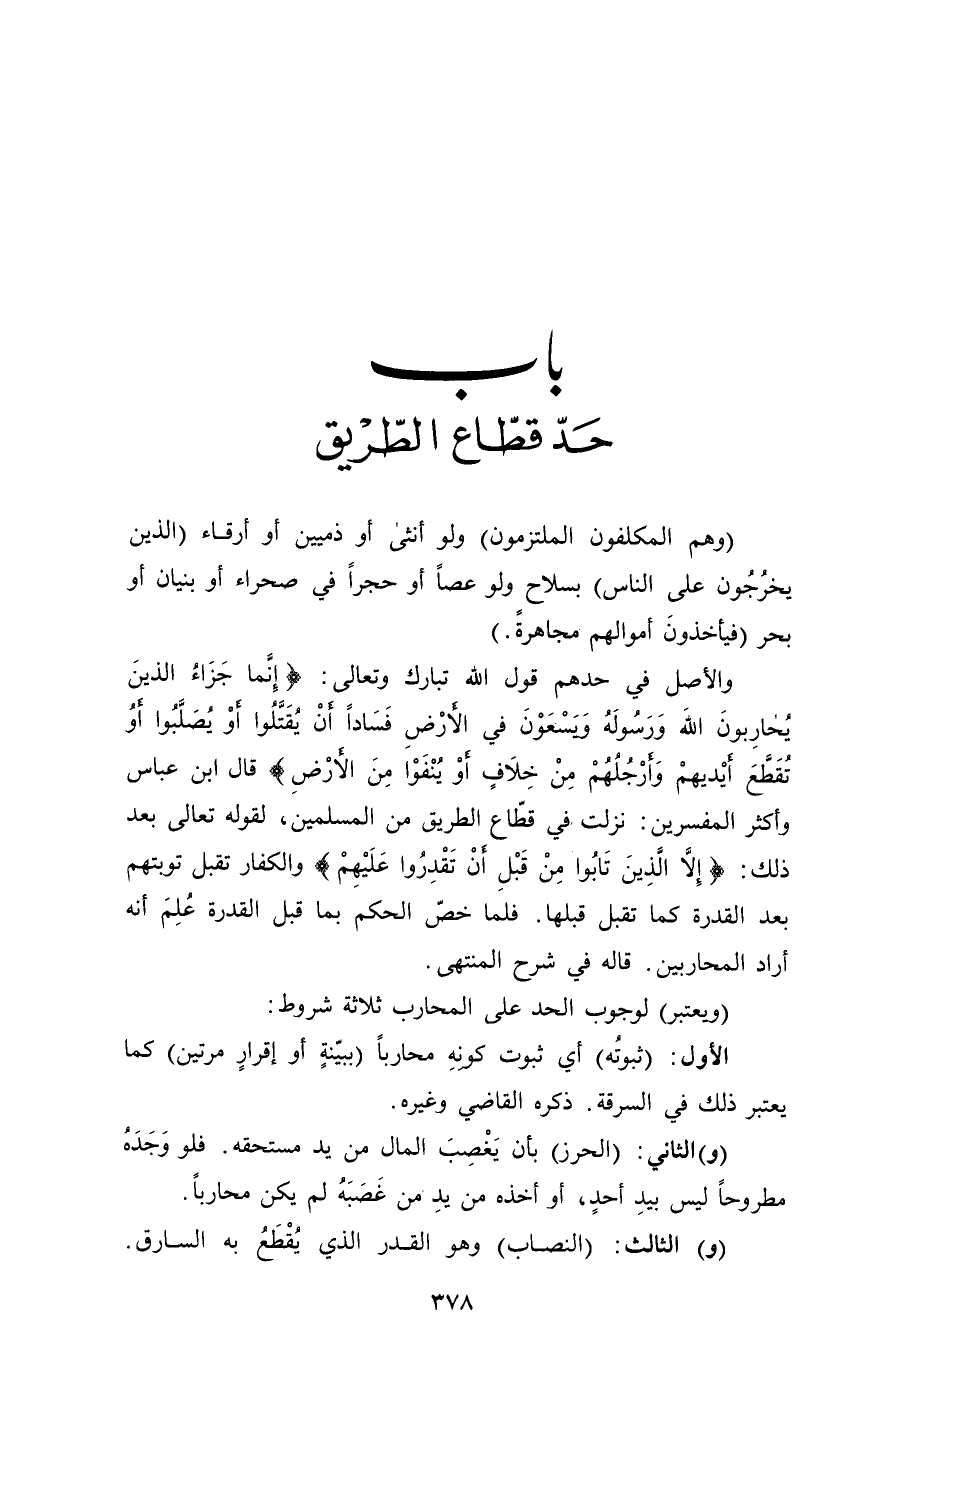 باب
حَدّ قطّاع الطّرْيق
(وهم المكلفون الملتزمون) ولو أنثىٰ أو ذميين أو أرقاء (الذين
يخرُجُون على الناس) بسلاح ولو عصاً أو حجراً في صحراء أو بنيان أو
بحر (فيأخذونَ أموالهم مجاهرةً.)
والأصل في حدهم قول الله تبارك وتعالى: ﴿إِنَّما جَزَاءُ الذينَ
يُحٰارِبونَ اللهَ وَرَسُولَهُ وَيَسْعَوْنَ في الأَرْضِ فَسَاداً أَنْ يُقَتَّلُوا أَوْ يُصَلَّبُوا أَوْ
تُقَطَّعَ أَيْديهمْ وَأَرْجُلُهُمْ مِنْ خِلَافٍ أَوْ يُنْفَوْا مِنَ الأَرْضِ﴾ قال ابن عباس
وأكثر المفسرين: نزلت في قطّاع الطريق من المسلمين، لقوله تعالى بعد
ذلك: ﴿إِلَّا الَّذِينَ تَابُوا مِنْ قَبْلِ أَنْ تَقْدِرُوا عَلَيْهِمْ﴾ والكفار تقبل توبتهم
بعد القدرة كما تقبل قبلها. فلما خصّ الحكم بما قبل القدرة عُلِمَ أنه
أراد المحاربين. قاله في شرح المنتهى.
(ويعتبر) لوجوب الحد على المحارب ثلاثة شروط:
الأول: (ثبوتُه) أي ثبوت كونِهِ محارباً (ببيّنةٍ أو إقرارٍ مرتين) كما
يعتبر ذلك في السرقة. ذكره القاضي وغيره.
(و)الثاني: (الحرز) بأن يَغْصِبَ المال من يد مستحقه. فلو وَجَدَهُ
مطروحاً ليس بيدِ أحدٍ، أو أخذه من يدِ من غَصَبَهُ لم يكن محارباً.
(و) الثالث: (النصاب) وهو القدر الذي يُقْطَعُ به السارق.
٣٧٨